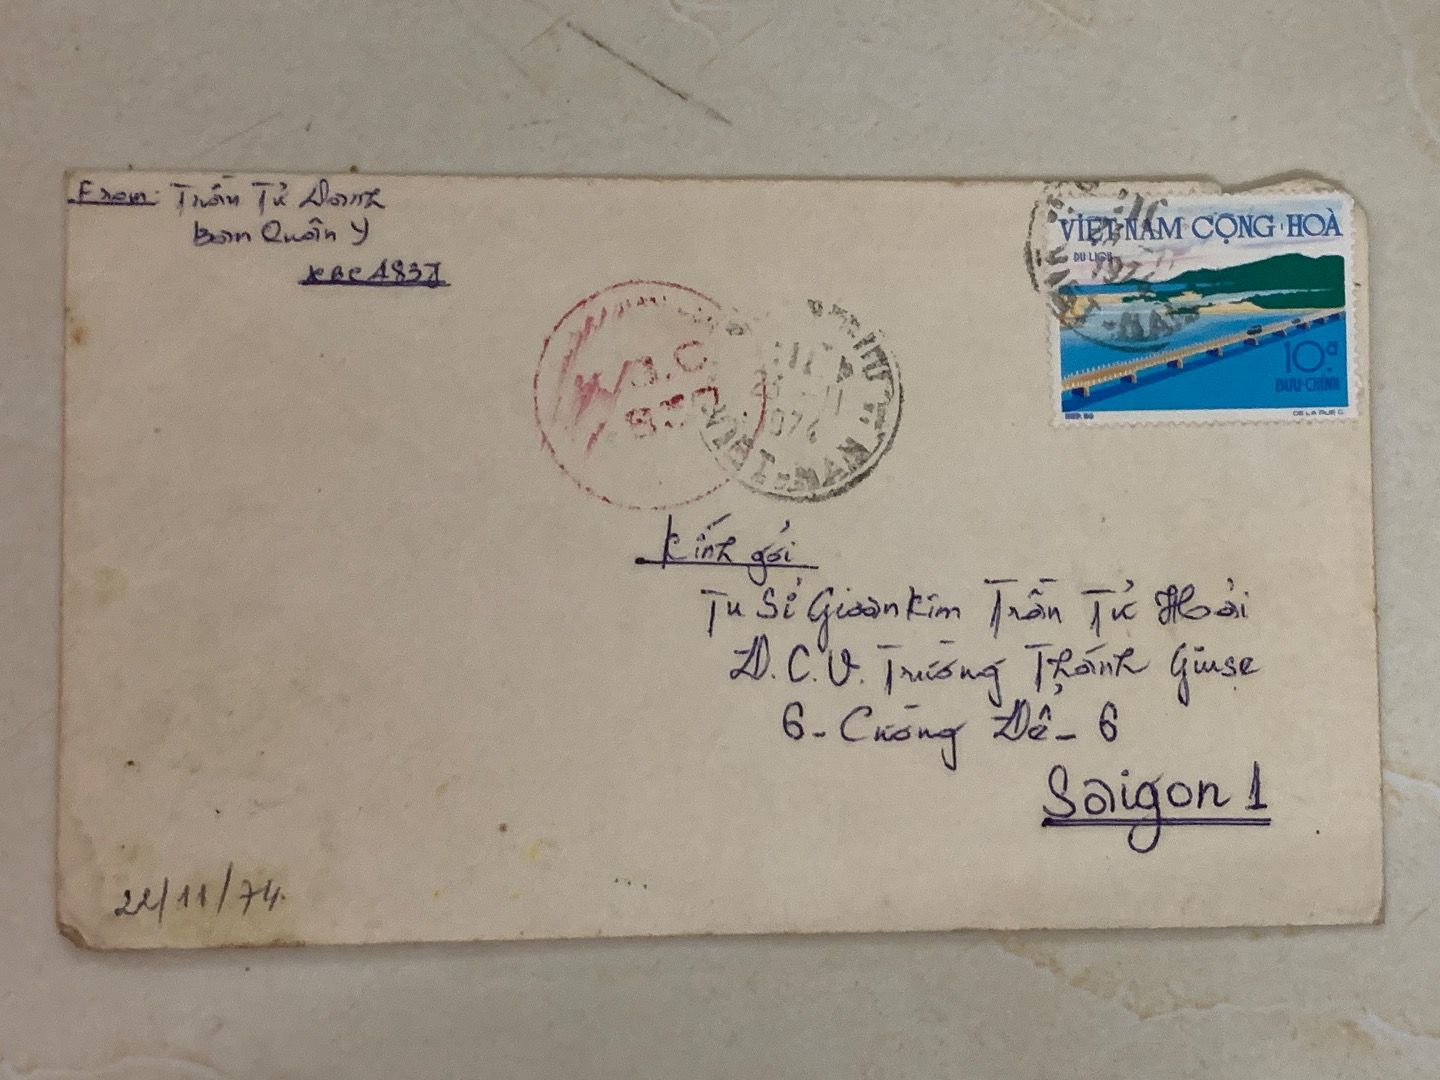 From: Trần Tử Danh
Ban Quân Y
KBC 4837
VIỆT-NAM CỘNG-HOÀ
DU LỊCH
10đ
BƯU-CHÍNH
DE LA RUE
K.B.C
VIỆT-NAM
1974
Kính gởi
Tu Sĩ Gioankim Trần Tử Hải
Đ.C.V. Trường Thánh Giuse
6- Cường Để- 6
Saigon 1
22/11/74.